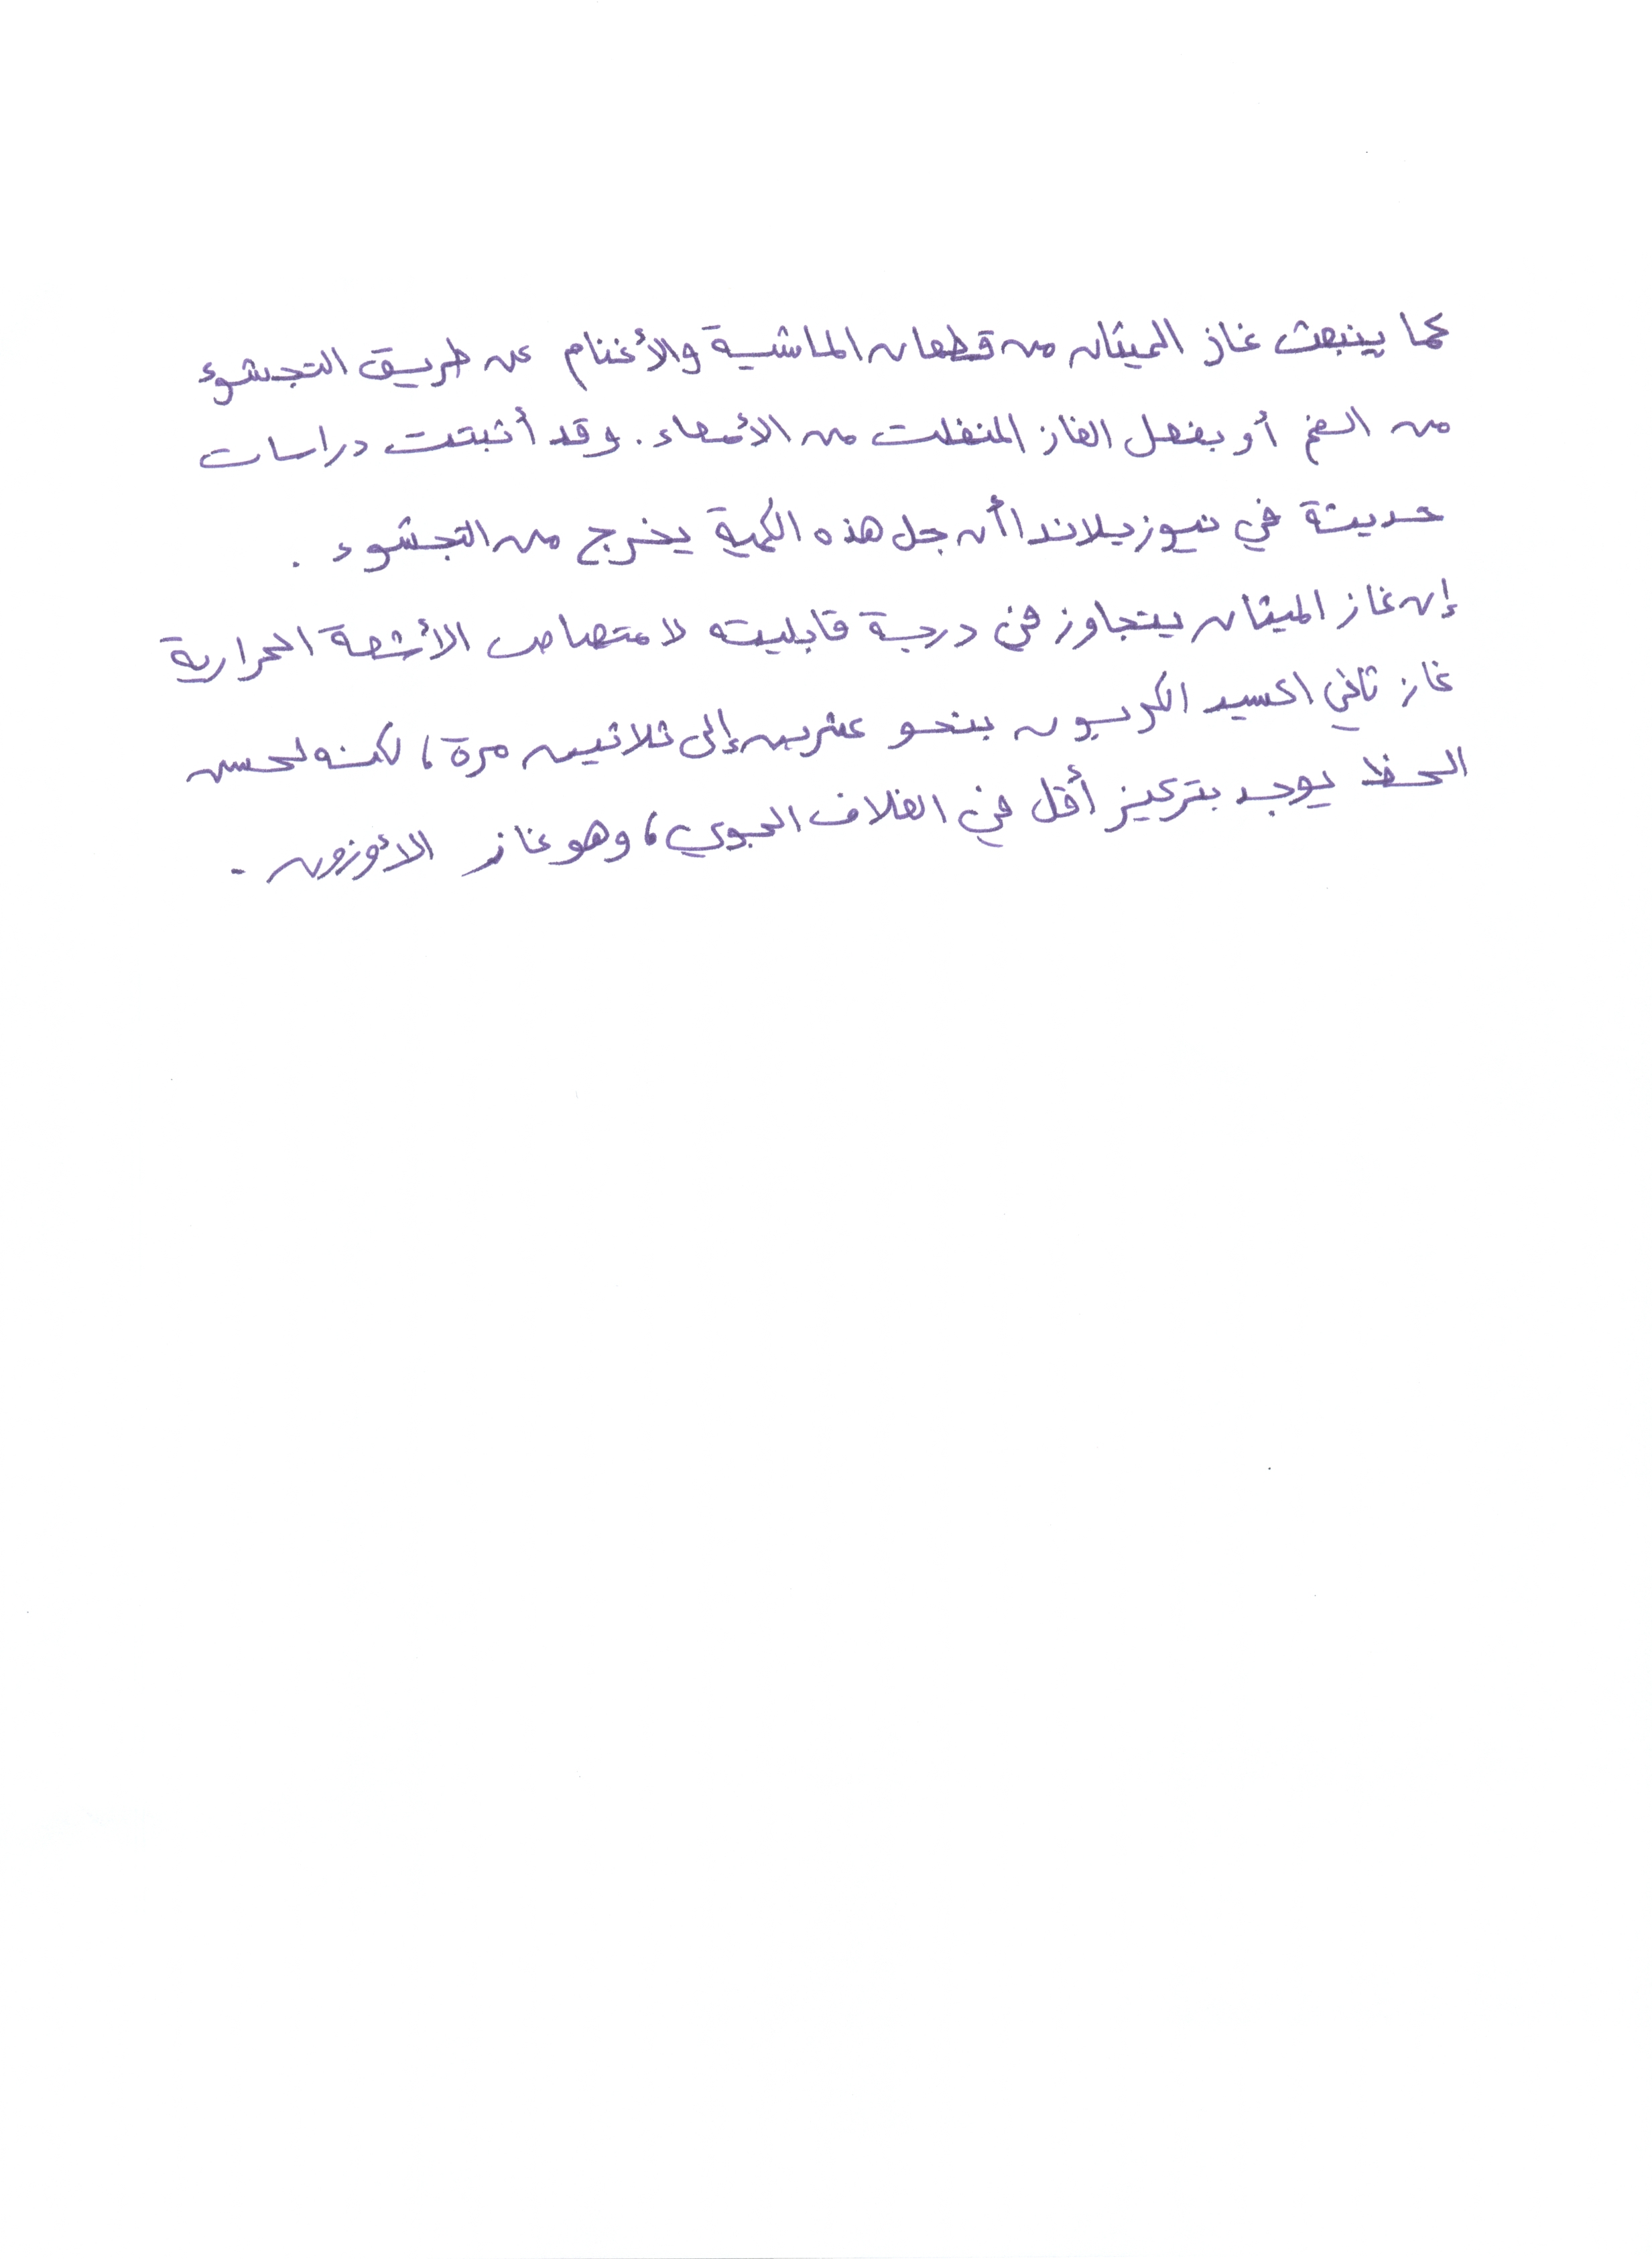 كما ينبعث غاز الميثان من قطعان الماشية والأغنام عن طريق التجشوء
من الفم أو بفعل الغاز المنفلت من الأمعاء. وقد أثبتت دراسات
حديثة في نيوزيلاندا أن جل هذه الكمية يخرج من التجشوء .
إن غاز الميثان يتجاوز في درجة قابليته لامتصاص الأشعة الحرارية
غاز ثاني اكسيد الكربون بنحو عشرين إلى ثلاثين مرة، لكنه لحسن
الحظ يوجد بتركيز أقل في الغلاف الجوي، وهو غاز الأوزون .